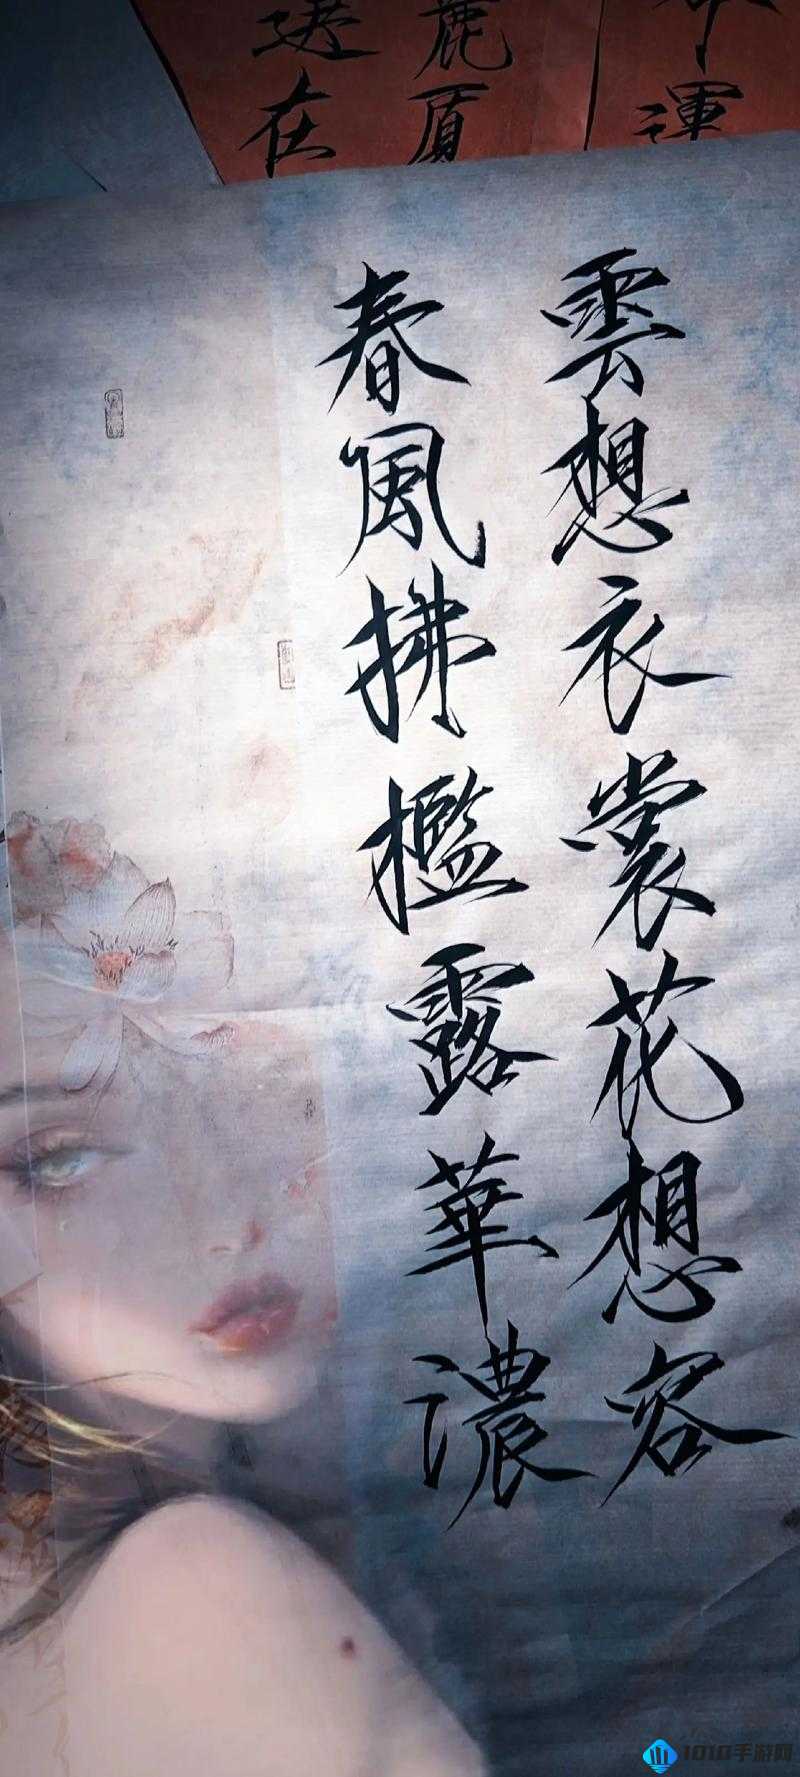 雲想衣裳花想容
春風拂檻露華濃
運
麗質
送在
1010手游网